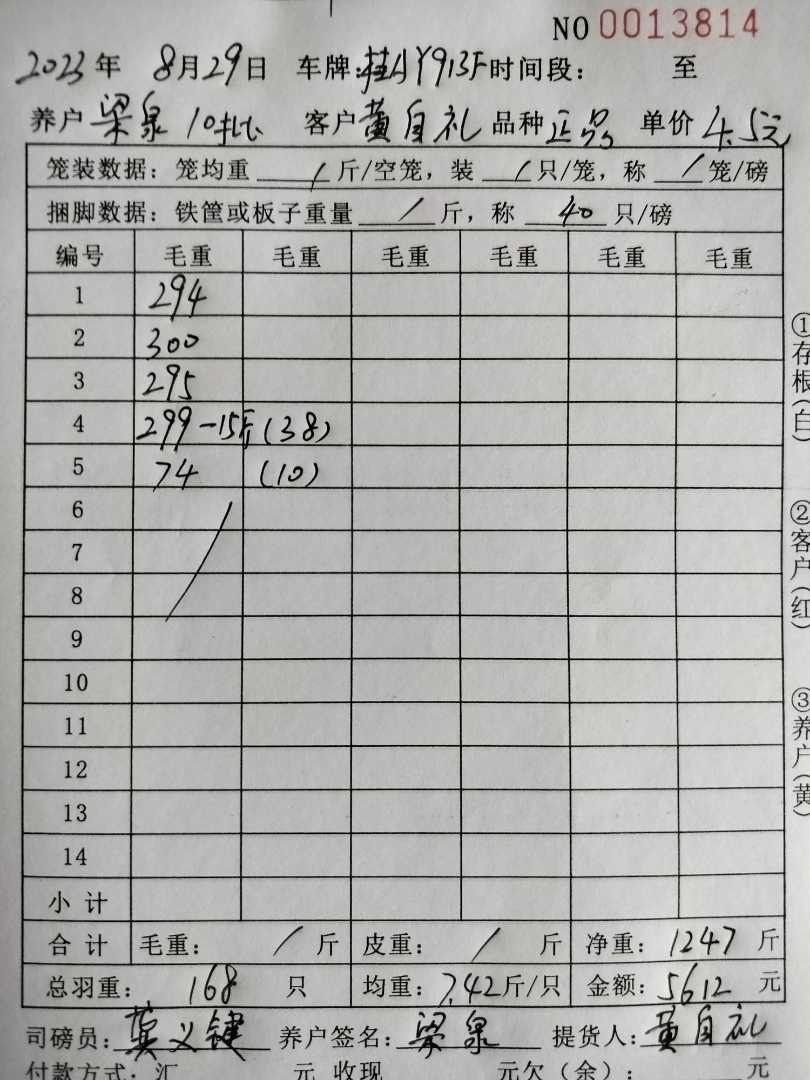 NO 0013814
2023年 8月29日 车牌:桂AY913F时间段: 至
养户 梁泉 10批 客户 黄自礼 品种 正品 单价 4.5元
笼装数据:笼均重 / 斤/空笼,装 / 只/笼,称 / 笼/磅
捆脚数据:铁筐或板子重量 / 斤,称 40 只/磅
编号 毛重 毛重 毛重 毛重 毛重 毛重
1 294
2 300
3 295
4 299-15斤(38)
5 74 (10)
6
7
8
9
10
11
12
13
14
小计
合计 毛重: / 斤 皮重: / 斤 净重: 1247 斤
总羽重: 168 只 均重: 7.42斤/只 金额: 5612 元
司磅员: 莫义键 养户签名: 梁泉 提货人: 黄自礼
付款方式:汇 元 收现 元欠(余): 元
①存根(白)
②客户(红)
③养户(黄)